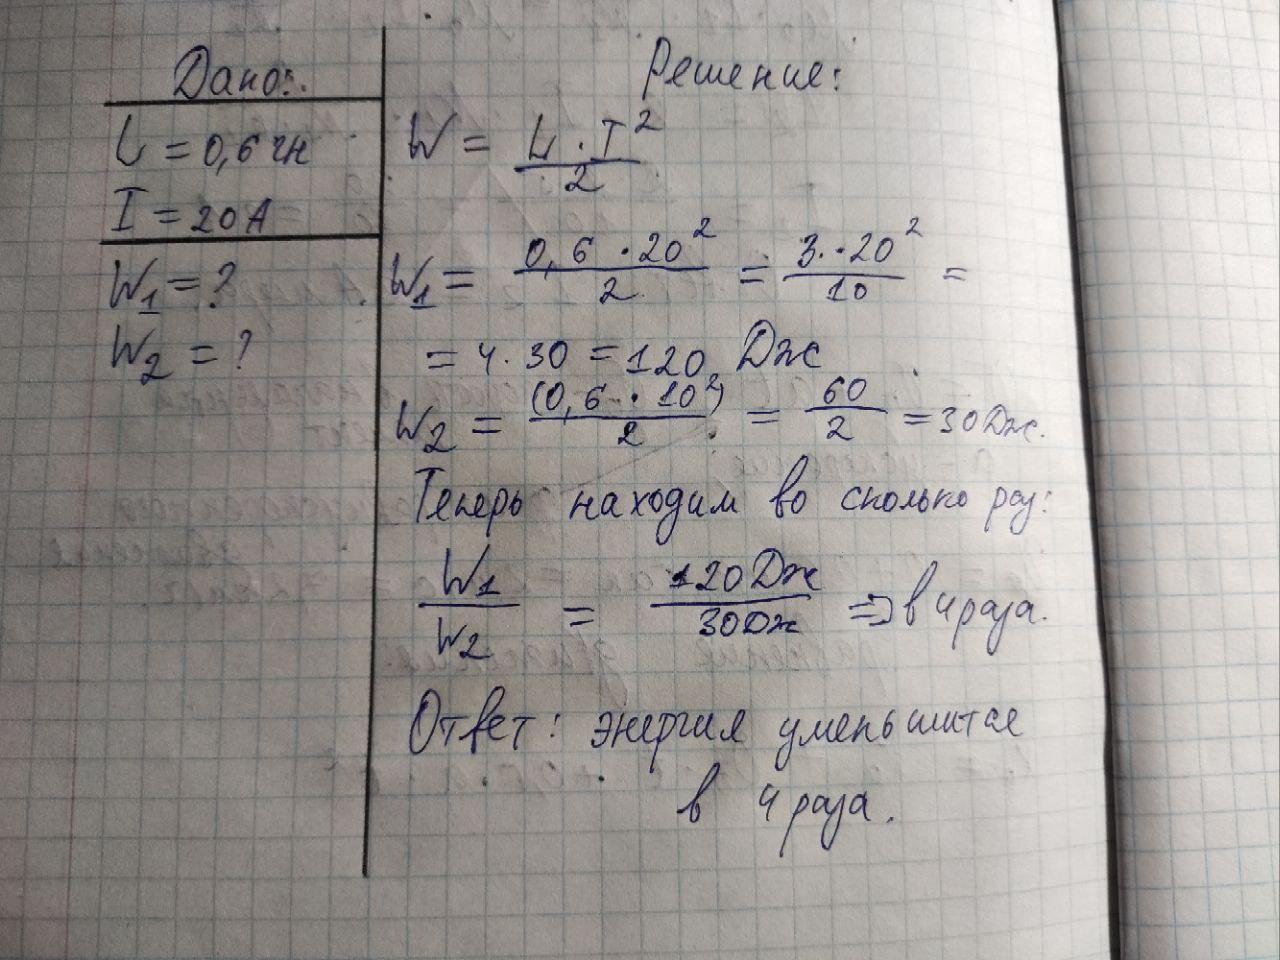 Дано:
L = 0,6 Гн
I = 20 А
W1 = ?
W2 = ?
Решение:
W = L · I² / 2
W1 = 0,6 · 20² / 2 = 3 · 20² / 10 =
= 4 · 30 = 120 Дж
W2 = (0,6 · 10²) / 2 = 60 / 2 = 30 Дж.
Теперь находим во сколько раз:
W1 / W2 = 120 Дж / 30 Дж => в 4 раза.
Ответ: энергия уменьшится
в 4 раза.